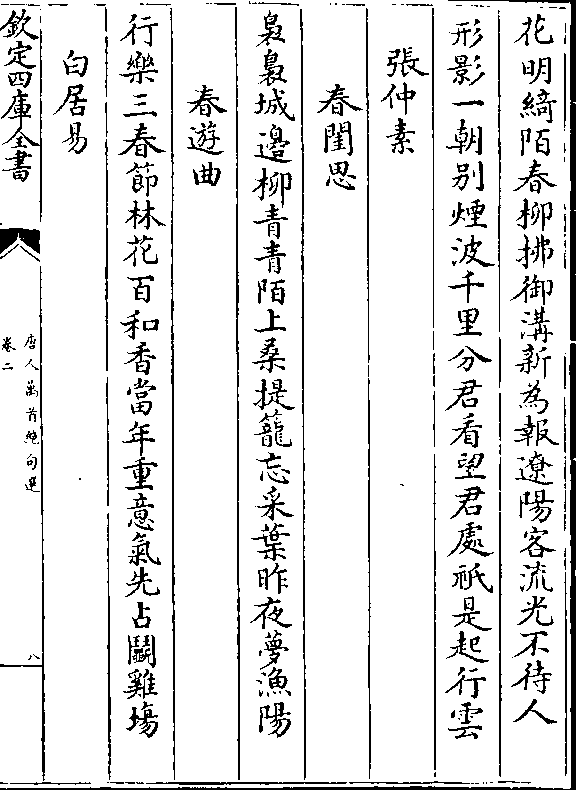 花明綺陌春柳拂御溝新為報遼陽客流光不待人
形影一朝别煙波千里分君看望君處祇是起行雲
張仲素
春閨思
裊裊城邊柳青青陌上桑提籠忘采葉昨夜夢漁陽
春遊曲
行樂三春節林花百和香當年重意氣先占鬭雞場
白居易
欽定四庫全書
唐人萬首絶句選
卷二
八